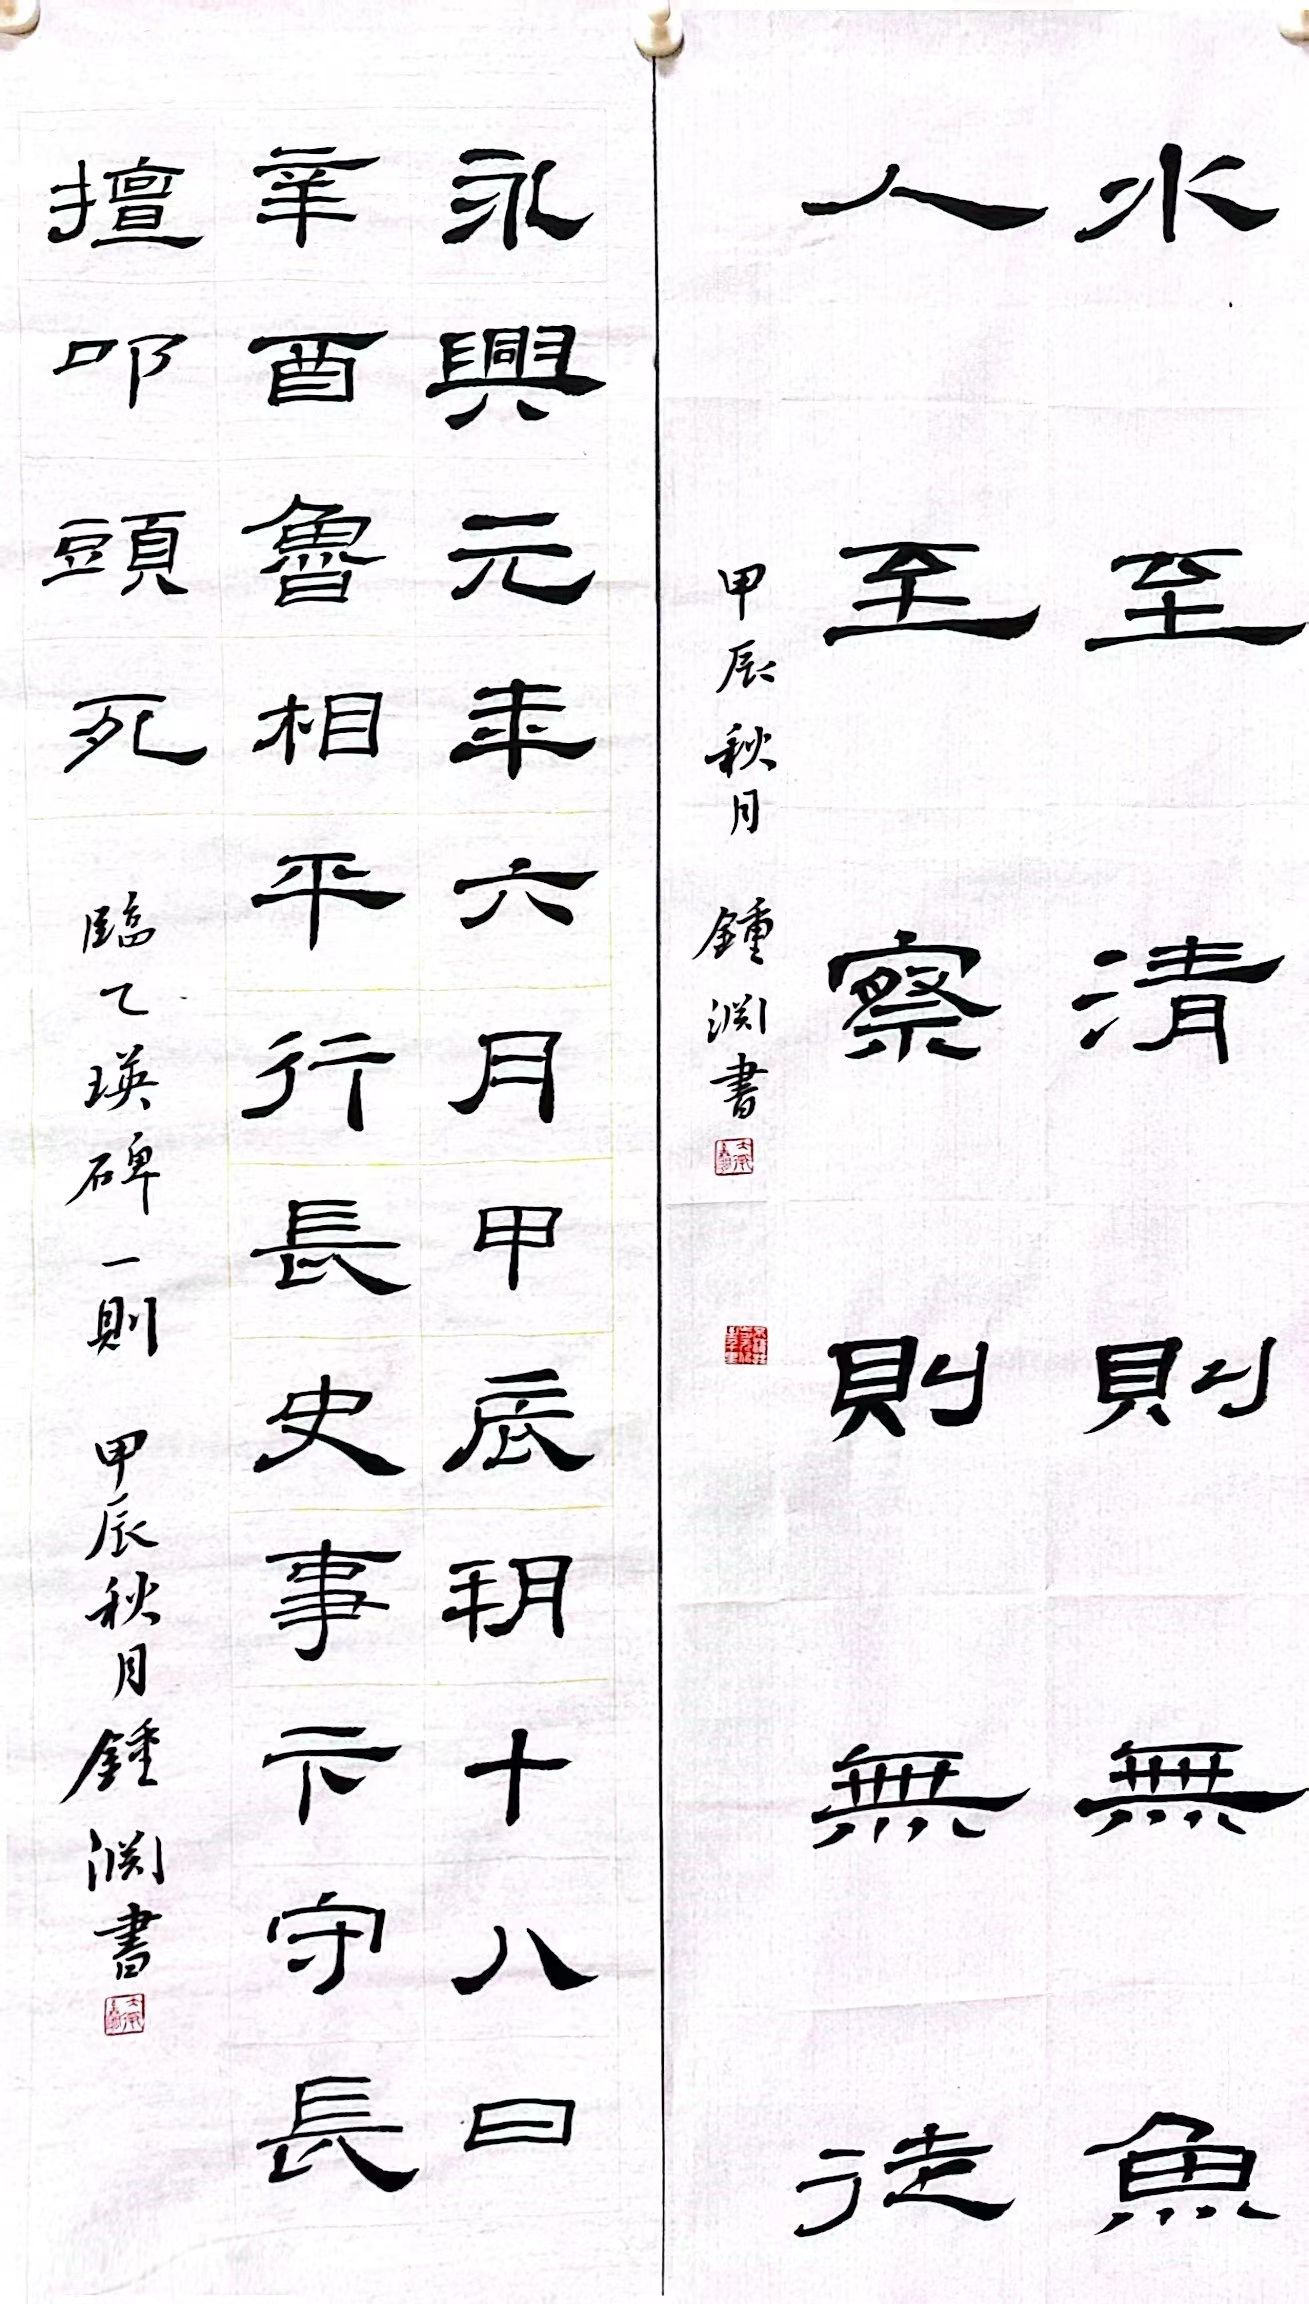 水至清則無魚
人至察則無徒
甲辰秋月 鍾淵書
永興元年六月甲辰朔十八日
辛酉魯相平行長史事卞守長
擅叩頭死
臨乙瑛碑一則 甲辰秋月鍾淵書